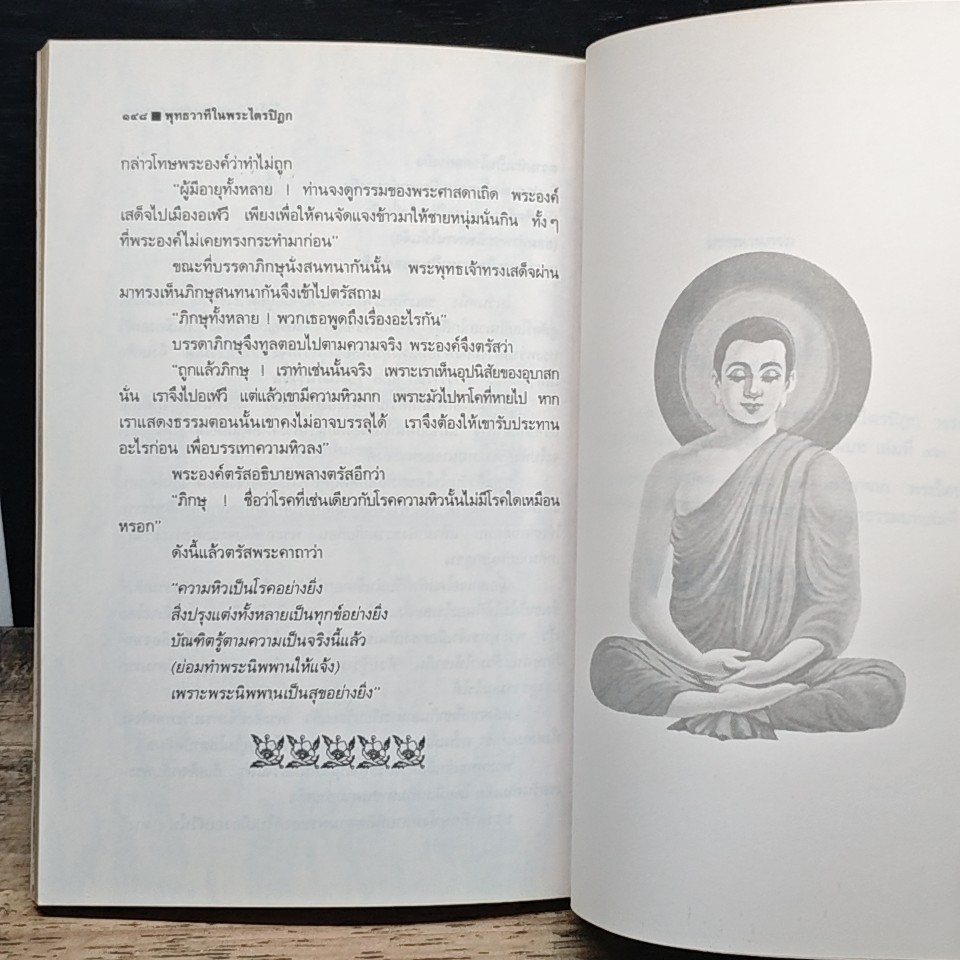 ๑๙๘ ■ พุทธวาทีในพระไตรปิฎก
กล่าวโทษพระองค์ว่าทำไม่ถูก
"ผู้มีอายุทั้งหลาย ! ท่านจงดูกรรมของพระศาสดาเถิด พระองค์
เสด็จไปเมืองอเฬวี เพียงเพื่อให้คนจัดแจงข้าวมาให้ชายหนุ่มนั่นกิน ทั้งๆ
ที่พระองค์ไม่เคยทรงกระทำมาก่อน"
ขณะที่บรรดาภิกษุนั่งสนทนากันนั้น พระพุทธเจ้าทรงเสด็จผ่าน
มาทรงเห็นภิกษุสนทนากันจึงเข้าไปตรัสถาม
"ภิกษุทั้งหลาย ! พวกเธอพูดถึงเรื่องอะไรกัน"
บรรดาภิกษุจึงทูลตอบไปตามความจริง พระองค์จึงตรัสว่า
"ถูกแล้วภิกษุ ! เราทำเช่นนั้นจริง เพราะเราเห็นอุปนิสัยของอุบาสก
นั่น เราจึงไปอเฬวี แต่แล้วเขามีความหิวมาก เพราะมัวไปหาโคที่หายไป หาก
เราแสดงธรรมตอนนั้นเขาคงไม่อาจบรรลุได้ เราจึงต้องให้เขารับประทาน
อะไรก่อน เพื่อบรรเทาความหิวลง"
พระองค์ตรัสอธิบายพลางตรัสอีกว่า
"ภิกษุ ! ชื่อว่าโรคที่เช่นเดียวกับโรคความหิวนั้นไม่มีโรคใดเหมือน
หรอก"
ดังนี้แล้วตรัสพระคาถาว่า
"ความหิวเป็นโรคอย่างยิ่ง
สิ่งปรุงแต่งทั้งหลายเป็นทุกข์อย่างยิ่ง
บัณฑิตรู้ตามความเป็นจริงนี้แล้ว
(ย่อมทำพระนิพพานให้แจ้ง)
เพราะพระนิพพานเป็นสุขอย่างยิ่ง"